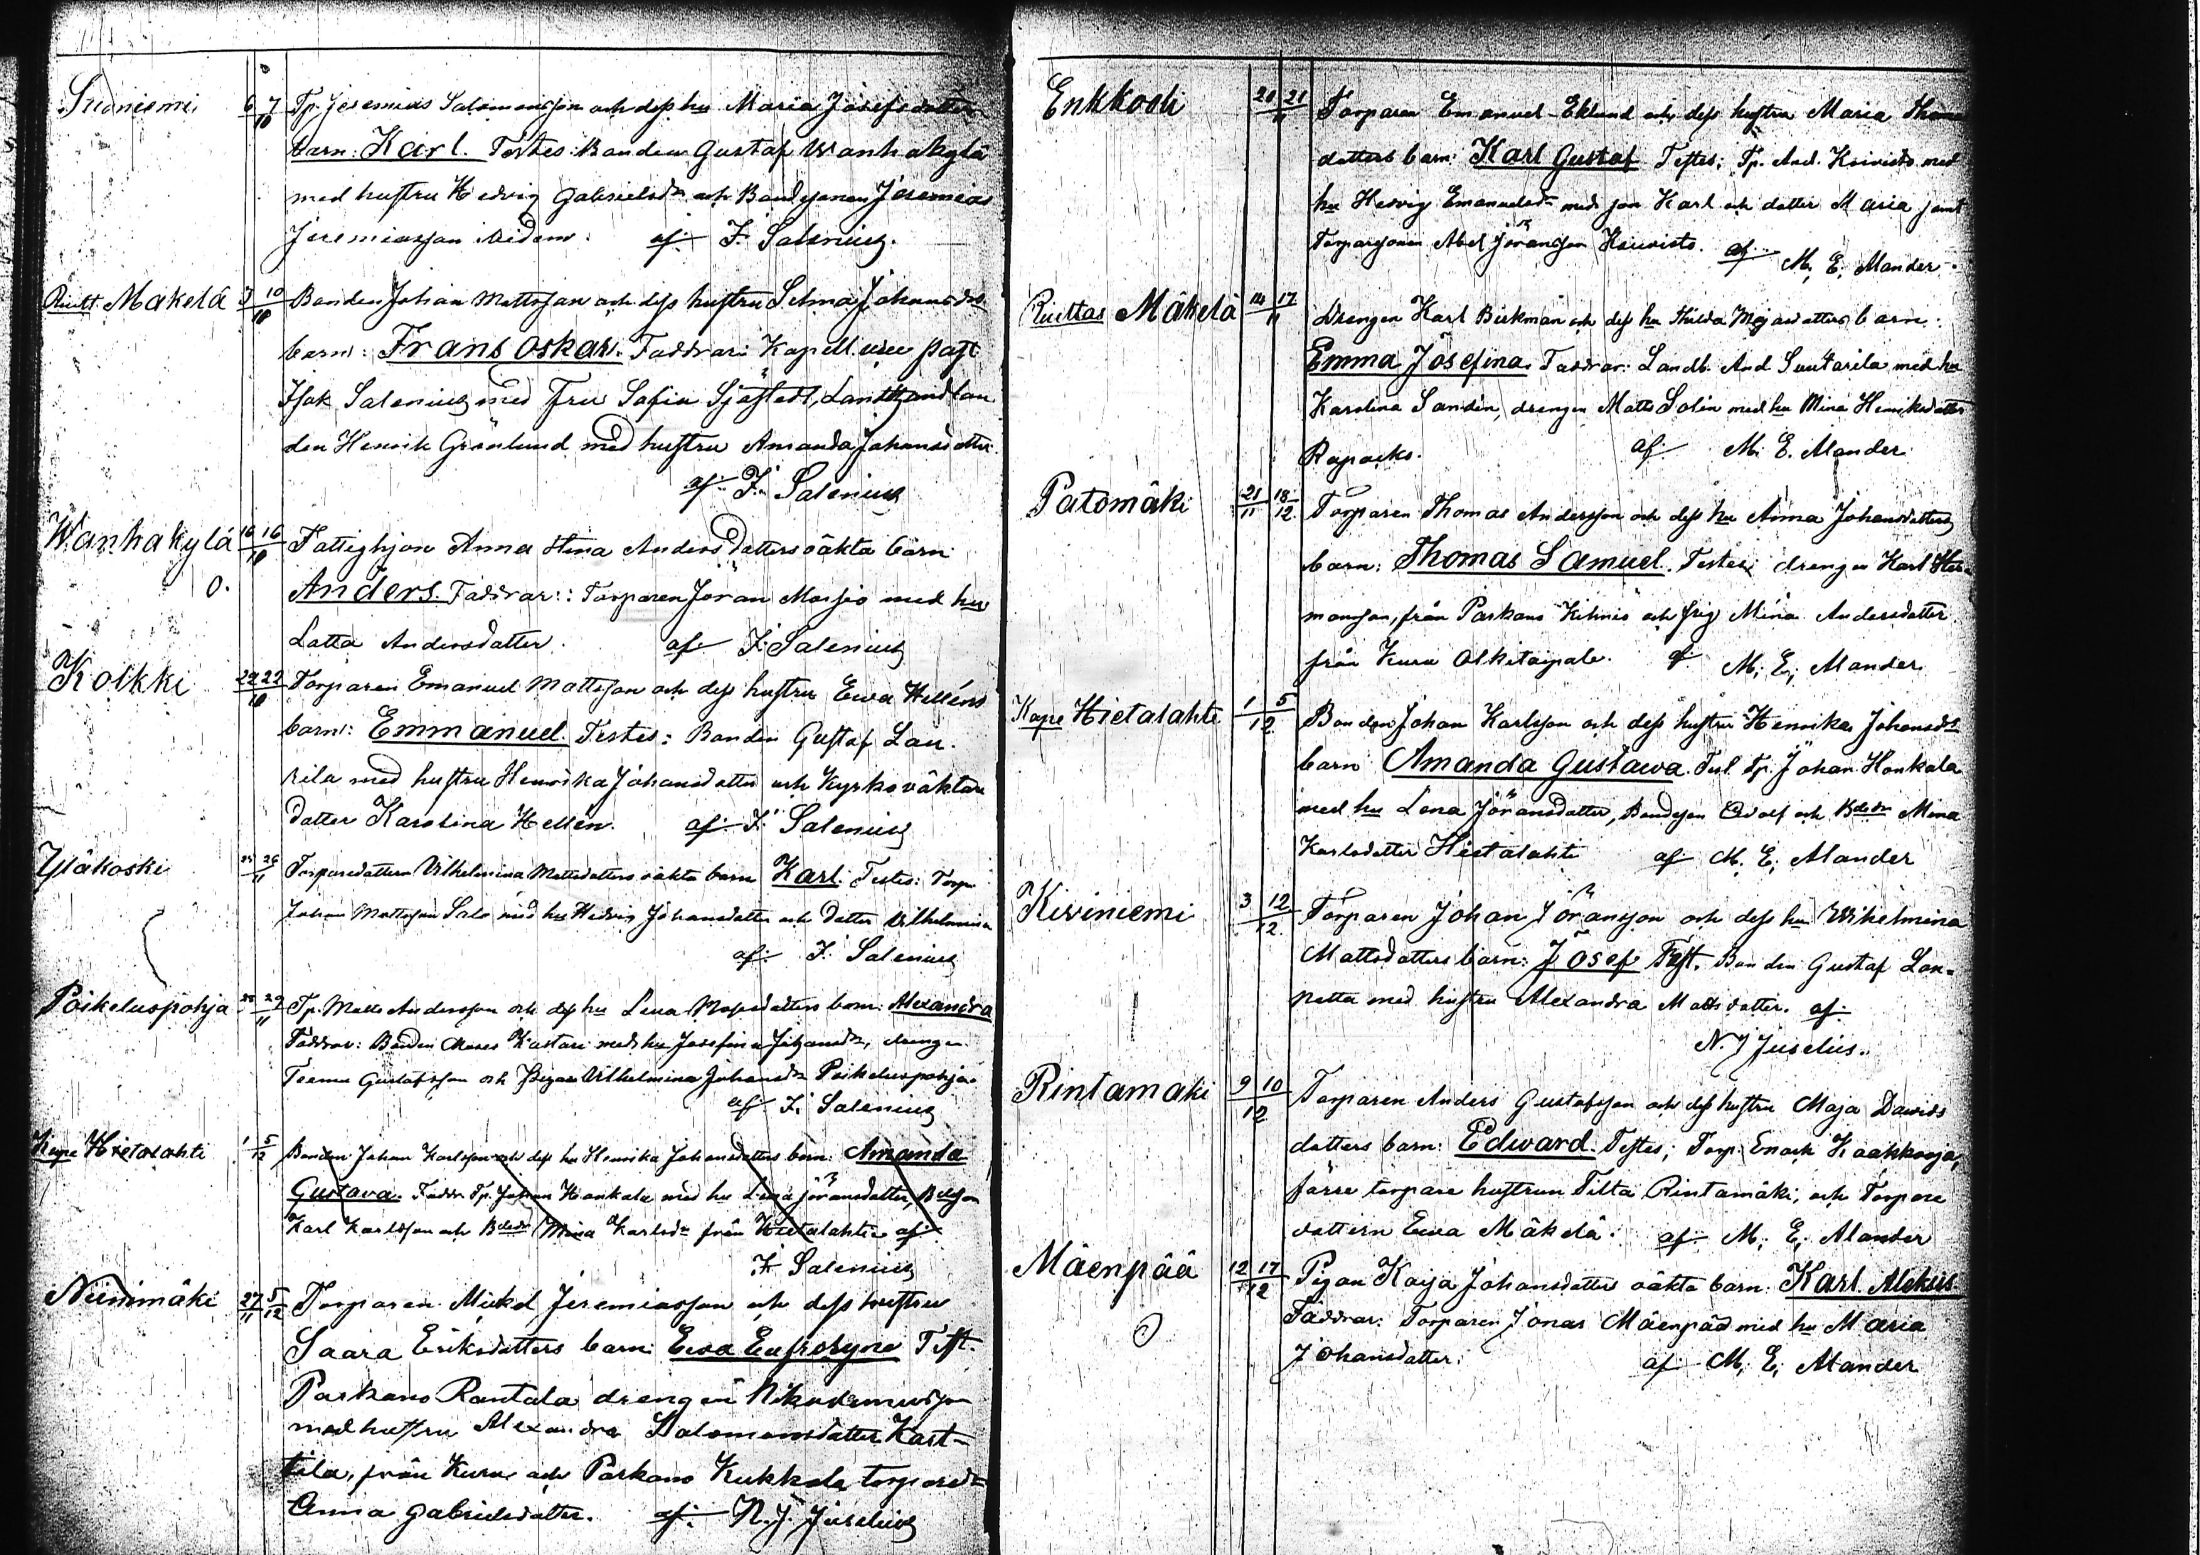 Suoniemi 6 7/10 Tp. Jeremias Salomonsson och dess hu Maria Josefsdotters
barn: Karl. Testes: Bonden Gustaf Wanhakylä
med hustru Hedvig Gabrielsdr och Bondsonen Jeremias
Jeremiasson ibidem. af F. Salenius.
Ruitt Mäkelä 3 10/10 Bonden Johan Mattsson och dess hustru Selma Johansdrs
barn: Frans Oskar. Faddrar: Kapell. vice past.
Isak Salenius med Fru Sofia Sjöstedt, Landthandlan
den Henrik Grönlund med hustru Amanda Johansdotter.
af F. Salenius
Wanhakylä 16 16/10 Fattighjon Anna Stina Anders dotters oäkta barn
o. Anders. Faddrar: Torparen Jöran Moisio med hu
Lotta Andersdotter. af F. Salenius
Kolkki 22 22/10 Torparen Emanuel Mattsson och dess hustru Ewa Helléns
barn: Emmanuel. Testes: Bonden Gustaf Lau-
rila med hustru Henrika Johansdotter och Kyrkoväktare
dotter Karolina Hellén. af F. Salenius
Yläkoski 25 26/11 Torparedottern Vilhelmina Mattsdotters oäkta barn Karl. Testes: Torp.
Johan Mattsson Salo med hu Hedvig Johansdotter och dotter Vilhelmina
af F. Salenius
Poikeluspohja 25 29/11 Tp. Matts Andersson och dess hu Lena Mosesdotters barn: Alexandra
Faddrar: Bonden Moses Kastari med hu Josefina Johansdr, drengen
Teemu Gustafsson och pigan Vilhelmina Johansdr Poikeluspohja.
af F. Salenius
Kope Hietalahti 1 5/12 Bonden Johan Karlsson och dess hu Henrika Johansdotters barn: Amanda
Gustava. Faddr. Tp. Johan Honkala med hu Lena Jöransdotter, Bdeson
Karl Karlsson och Bdedr Mina Karlsdr från Hietalahti. af
F. Salenius
Niinimäki 27/11 5/12 Torparen Mickel Jeremiasson och dess hustru
Saara Eriksdotters barn: Ewa Eufrosyne Test.
Parkano Rantala drengen Nikodemusson
med hustru Alexandra Salomonsdotter Kart-
tila, från Kuru och Parkano Kukkola torparedr
Anna Gabrielsdotter. af N. J. Juselius
Enkkooli 20 21/11 Torparen Emanuel Eklund och dess hustru Maria Thomas
dotters barn: Karl Gustaf Testes: Tp. And. Koivisto med
hu Hedvig Emanuelsdr med son Karl och dotter Maria samt
Torparsonen Abel Jöransson Koivisto. af M. E. Alander.
Ruittas Mäkelä 14 17/11 Drengen Karl Birkman och dess hu Hilda Majasdotters barn:
Emma Josefina. Faddrar: Landb. And Suutarila med hu
Karolina Sandén, drengen Matts Solin med hu Mina Henriksdotter
Rapacko. af M. E. Alander.
Patomäki 21/11 18/12 Torparen Thomas Andersson och dess hu Anna Johansdotters
barn: Thomas Samuel. Testes: drengen Karl Her-
mansson, från Parkano Kihniö och pig. Mina Andersdotter
från Kuru Olkitaipale. af M. E. Alander
Kope Hietalahti 1 5/12 Bonden Johan Karlsson och dess hustru Henrika Johansdrs
barn Amanda Gustawa. Test. Tp. Johan Honkala
med hu Lena Jöransdotter, Bondeson Adolf och Bdedr Mina
Karlsdotter Hietalahti af M. E. Alander
Kiviniemi 3 12/12 Torparen Johan Jöransson och dess hu Wilhelmina
Mattsdotters barn: Josef Test. Bonden Gustaf Lou-
natta med hustru Alexandra Mattsdotter. af
N. J Juselius.
Rintamäki 9 10/12 Torparen Anders Gustafsson och dess hustru Maja Davids
dotters barn: Edward. Testes; Torp. Enoch Kaakkooja,
förre torpare hustrun Tilta Rintamäki, och Torpare
dottern Ewa Mäkelä. af M. E. Alander
Mäenpää 12 17/12 Pigan Kaija Johansdotters oäkta barn: Karl Aleksis
Faddrar: Torparen Jonas Mäenpää med hu Maria
Johansdotter. af M. E. Alander